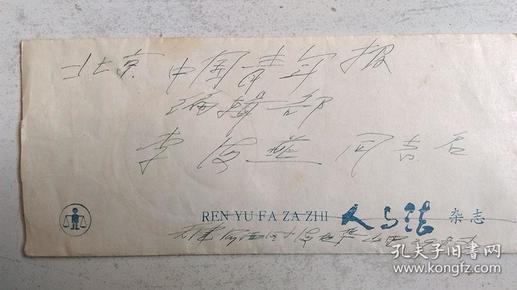 北京 中国青年报
编辑部
李海燕 同志启
REN YU FA ZA ZHI 人与法 杂志
天津
孔夫子旧书网